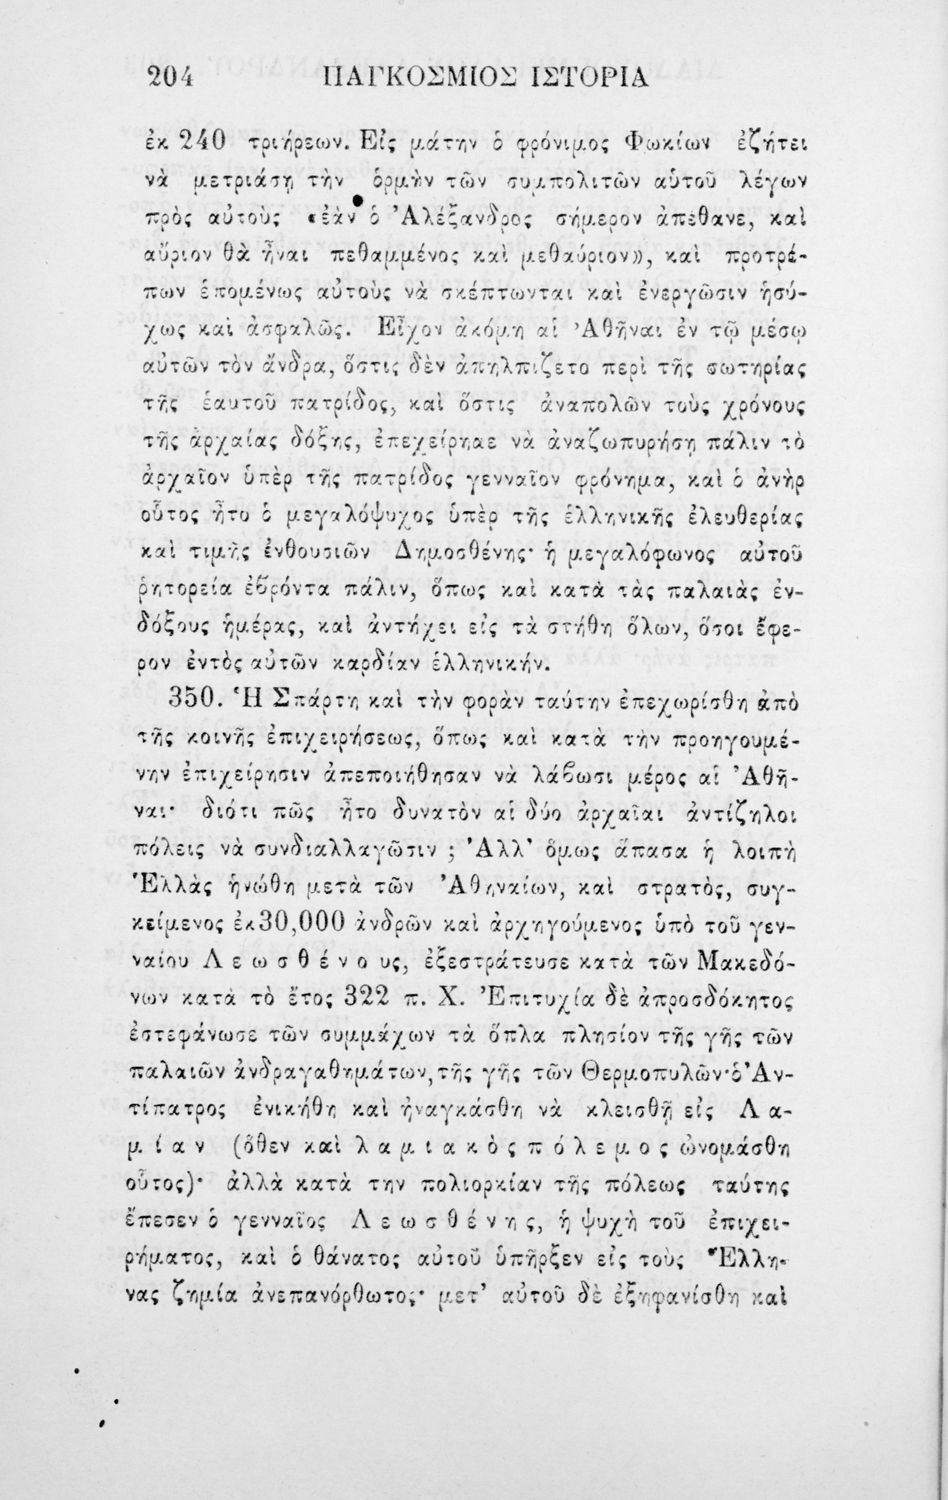 204 ΠΑΓΚΟΣΜΙΟΣ ΙΣΤΟΡΙΑ
ἐκ 240 τριήρεων. Εἰς μάτην ὁ φρόνιμος Φωκίων ἐζήτει
νὰ μετριάσῃ τὴν ὁρμὴν τῶν συμπολιτῶν αὑτοῦ λέγων
πρὸς αὐτοὺς «ἐὰν ὁ Ἀλέξανδρος σήμερον ἀπέθανε, καὶ
αὔριον θὰ ἦναι πεθαμμένος καὶ μεθαύριον», καὶ προτρέ-
πων ἑπομένως αὐτοὺς νὰ σκέπτωνται καὶ ἐνεργῶσιν ἡσύ-
χως καὶ ἀσφαλῶς. Εἶχον ἀκόμη αἱ Ἀθῆναι ἐν τῷ μέσῳ
αὐτῶν τὸν ἄνδρα, ὅστις δὲν ἀπηλπίζετο περὶ τῆς σωτηρίας
τῆς ἑαυτοῦ πατρίδος, καὶ ὅστις ἀναπολῶν τοὺς χρόνους
τῆς ἀρχαίας δόξης, ἐπεχείρησε νὰ ἀναζωπυρήσῃ πάλιν τὸ
ἀρχαῖον ὑπὲρ τῆς πατρίδος γενναῖον φρόνημα, καὶ ὁ ἀνὴρ
οὗτος ἦτο ὁ μεγαλόψυχος ὑπὲρ τῆς ἑλληνικῆς ἐλευθερίας
καὶ τιμῆς ἐνθουσιῶν Δημοσθένης· ἡ μεγαλόφωνος αὐτοῦ
ῥητορεία ἐβρόντα πάλιν, ὅπως καὶ κατὰ τὰς παλαιὰς ἐν-
δόξους ἡμέρας, καὶ ἀντήχει εἰς τὰ στήθη ὅλων, ὅσοι ἔφε-
ρον ἐντὸς αὐτῶν καρδίαν ἑλληνικήν.
350. Ἡ Σπάρτη καὶ τὴν φορὰν ταύτην ἐπεχωρίσθη ἀπὸ
τῆς κοινῆς ἐπιχειρήσεως, ὅπως καὶ κατὰ τὴν προηγουμέ-
νην ἐπιχείρησιν ἀπεποιήθησαν νὰ λάβωσι μέρος αἱ Ἀθῆ-
ναι· διότι πῶς ἦτο δυνατὸν αἱ δύο ἀρχαῖαι ἀντίζηλοι
πόλεις νὰ συνδιαλλαγῶσιν ; Ἀλλ' ὅμως ἅπασα ἡ λοιπὴ
Ἑλλὰς ἡνώθη μετὰ τῶν Ἀθηναίων, καὶ στρατὸς, συγ-
κείμενος ἐκ 30,000 ἀνδρῶν καὶ ἀρχηγούμενος ὑπὸ τοῦ γεν-
ναίου Λεωσθένους, ἐξεστράτευσε κατὰ τῶν Μακεδό-
νων κατὰ τὸ ἔτος 322 π. Χ. Ἐπιτυχία δὲ ἀπροσδόκητος
ἐστεφάνωσε τῶν συμμάχων τὰ ὅπλα πλησίον τῆς γῆς τῶν
παλαιῶν ἀνδραγαθημάτων, τῆς γῆς τῶν Θερμοπυλῶν· ὁ Ἀν-
τίπατρος ἐνικήθη καὶ ἠναγκάσθη νὰ κλεισθῇ εἰς Λα-
μίαν (ὅθεν καὶ λαμιακὸς πόλεμος ὠνομάσθη
οὗτος)· ἀλλὰ κατὰ την πολιορκίαν τῆς πόλεως ταύτης
ἔπεσεν ὁ γενναῖος Λεωσθένης, ἡ ψυχὴ τοῦ ἐπιχει-
ρήματος, καὶ ὁ θάνατος αὐτοῦ ὑπῆρξεν εἰς τοὺς Ἕλλη-
νας ζημία ἀνεπανόρθωτος· μετ' αὐτοῦ δὲ ἐξηφανίσθη καὶ